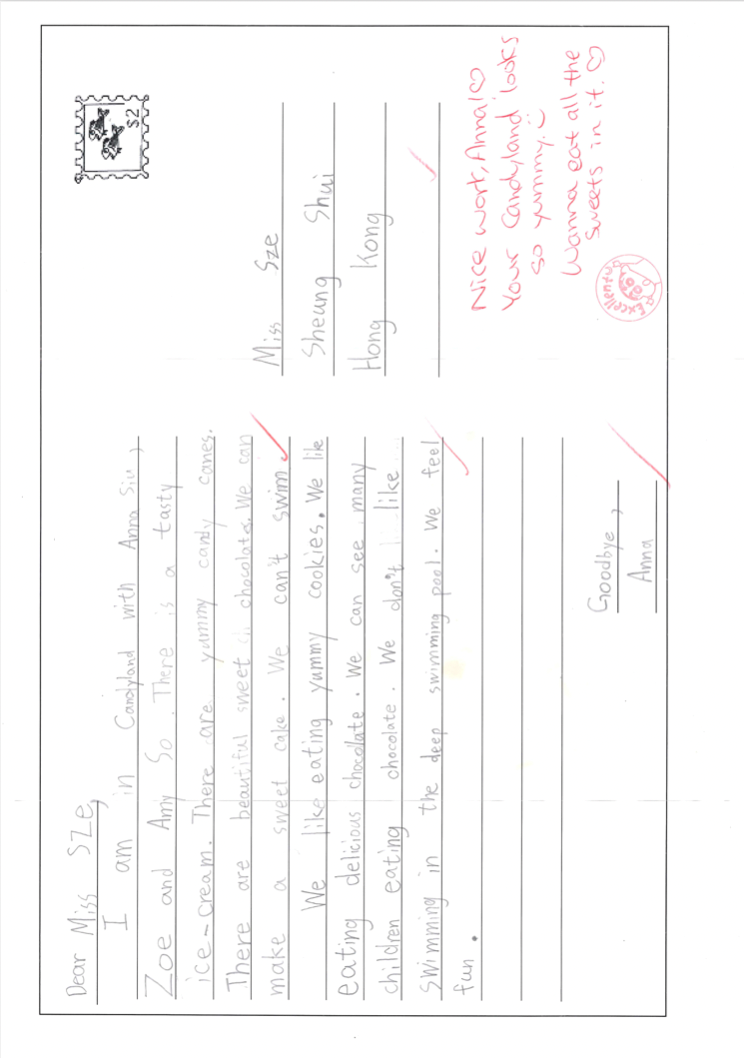 Dear Miss Sze,
I am in Candyland with Anna Siu,
Zoe and Amy So. There is a tasty
ice-cream. There are yummy candy canes.
There are beautiful sweet chocolate. We can
make a sweet cake. We can't swim.
We like eating yummy cookies. We like
eating delicious chocolate. We can see many
children eating chocolate. We don't like
swimming in the deep swimming pool. We feel
fun.
Goodbye,
Anna
$2
Miss Sze
Sheung Shui
Hong Kong
Nice work, Anna!♡
Your Candyland looks
so yummy.
Wanna eat all the
sweets in it.♡
Excellent